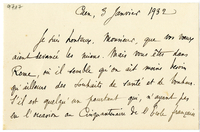 Caen, 3 Janvier 1932
Je suis honteux, Monsieur, que vos vœux
aient devancé les miens. Mais vous êtes dans
Rome, où il semble qu'on ait moins besoin
qu'ailleurs des souhaits de santé et de bonheur.
S'il est quelqu'un pourtant qui, n'ayant pas
eu l'occasion au Cinquantenaire de l'École française